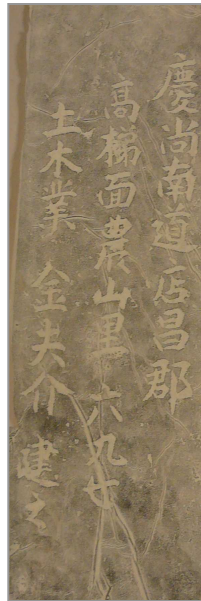 慶尚南道居昌郡
高梯面農山里六九七
土木業 金夫介 建之